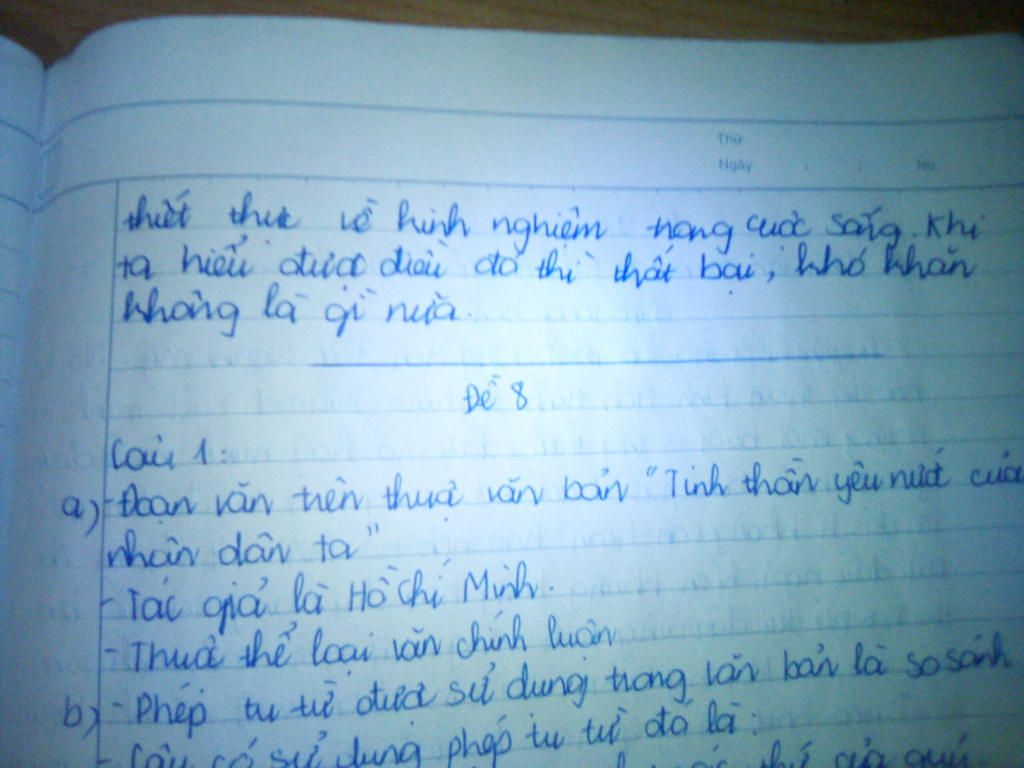 Thứ
Ngày
No.
thiết thực về kinh nghiệm trong cuộc sống. Khi
ta hiểu được điều đó thì thất bại, khó khăn
không là gì nữa.
Đề 8
Câu 1:
a) - Đoạn văn trên thuộc văn bản "Tinh thần yêu nước của
nhân dân ta"
- Tác giả là Hồ Chí Minh.
- Thuộc thể loại văn chính luận
b) - Phép tu từ được sử dụng trong văn bản là so sánh
- Câu có sử dụng phép tu từ đó là:
thứ của quý